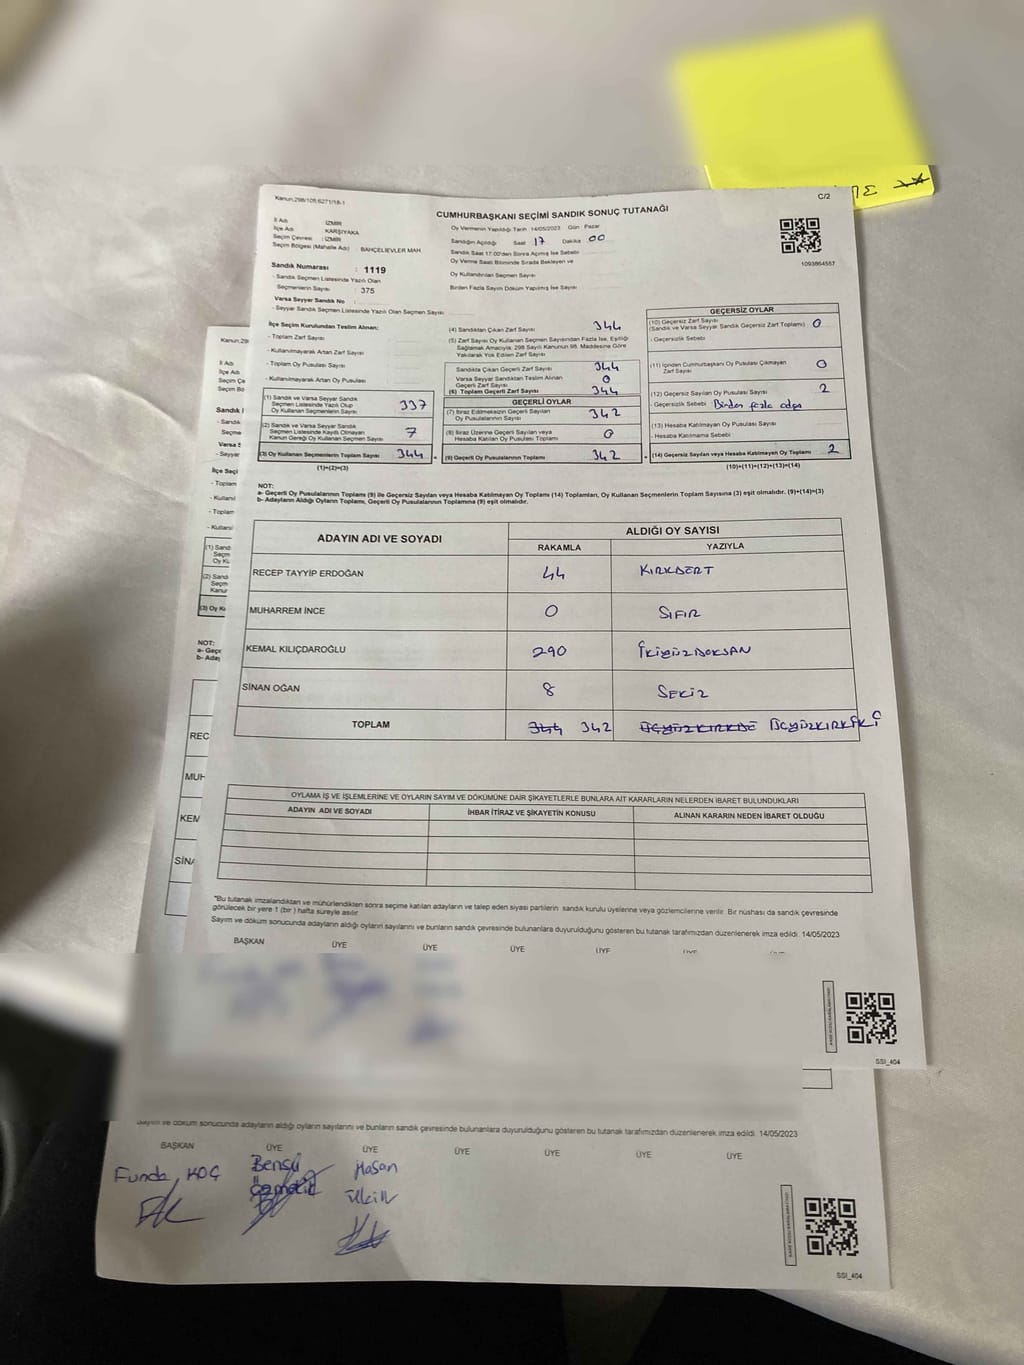 Kanun.298/105,6271/18-1
C/2
CUMHURBAŞKANI SEÇİMİ SANDIK SONUÇ TUTANAĞI
İl Adı : İZMİR
İlçe Adı : KARŞIYAKA
Seçim Çevresi : İZMİR
Seçim Bölgesi (Mahalle Adı) : BAHÇELİEVLER MAH
Sandık Numarası : 1119
- Sandık Seçmen Listesinde Yazılı Olan
Seçmenlerin Sayısı : 375
Varsa Seyyar Sandık No :
- Seyyar Sandık Seçmen Listesinde Yazılı Olan Seçmen Sayısı
Oy Vermenin Yapıldığı Tarih 14/05/2023 Gün Pazar
Sandığın Açıldığı Saat 17 Dakika 00
Sandık Saat 17.00'den Sonra Açılmış İse Sebebi
Oy Verme Saati Bitiminde Sırada Bekleyen ve
Oy Kullandırılan Seçmen Sayısı
Birden Fazla Sayım Döküm Yapılmış İse Sayısı
1093864557
İlçe Seçim Kurulundan Teslim Alınan;
- Toplam Zarf Sayısı
- Kullanılmayarak Artan Zarf Sayısı
- Toplam Oy Pusulası
- Kullanılmayarak Artan Oy Pusulası
(1) Sandık ve Varsa Seyyar Sandık
Seçmen Listesinde Yazılı Olup
Oy Kullanan Seçmenlerin Sayısı 337
(2) Sandık ve Varsa Seyyar Sandık
Seçmen Listesinde Kayıtlı Olmayan
Kanun Gereği Oy Kullanan Seçmen Sayısı 7
(3) Oy Kullanan Seçmenlerin Toplam Sayısı 344
(1)+(2)=(3)
(4) Sandıktan Çıkan Zarf Sayısı 344
(5) Zarf Sayısı Oy Kullanan Seçmen Sayısından Fazla İse, Eşitliği
Sağlamak Amacıyla, 298 Sayılı Kanunun 98. Maddesine Göre
Yakılarak Yok Edilen Zarf Sayısı
Sandıkta Çıkan Geçerli Zarf Sayısı 344
Varsa Seyyar Sandıktan Teslim Alınan
Geçerli Zarf Sayısı 0
(6) Toplam Geçerli Zarf Sayısı 344
GEÇERLİ OYLAR
(7) İtiraz Edilmeksizin Geçerli Sayılan
Oy Pusulalarının Sayısı 342
(8) İtiraz Üzerine Geçerli Sayılan veya
Hesaba Katılan Oy Pusulası Toplamı 0
(9) Geçerli Oy Pusulalarının Toplamı 342
GEÇERSİZ OYLAR
(10) Geçersiz Zarf Sayısı
(Sandık ve Varsa Seyyar Sandık Geçersiz Zarf Toplamı) 0
- Geçersizlik Sebebi
(11) İçinden Cumhurbaşkanı Oy Pusulası Çıkmayan
Zarf Sayısı 0
(12) Geçersiz Sayılan Oy Pusulası Sayısı 2
- Geçersizlik Sebebi Birden fazla
(13) Hesaba Katılmayan Oy Pusulası Sayısı
- Hesaba Katılmama Sebebi
(14) Geçersiz Sayılan veya Hesaba Katılmayan Oy Toplamı 2
(10)+(11)+(12)+(13)=(14)
NOT:
a- Geçerli Oy Pusulalarının Toplamı (9) ile Geçersiz Sayılan veya Hesaba Katılmayan Oy Toplamı (14) Toplamları, Oy Kullanan Seçmenlerin Toplam Sayısına (3) eşit olmalıdır. (9)+(14)=(3)
b- Adayların Aldığı Oyların Toplamı, Geçerli Oy Pusulalarının Toplamına (9) eşit olmalıdır.
ADAYIN ADI VE SOYADI ALDIĞI OY SAYISI
RAKAMLA YAZIYLA
RECEP TAYYİP ERDOĞAN 44 KIRKDÖRT
MUHARREM İNCE 0 SIFIR
KEMAL KILIÇDAROĞLU 290 İKİYÜZDOKSAN
SİNAN OĞAN 8 SEKİZ
TOPLAM 344 342 ÜÇYÜZKIRKİKİ
OYLAMA İŞ VE İŞLEMLERİNE VE OYLARIN SAYIM VE DÖKÜMÜNE DAİR ŞİKAYETLERLE BUNLARA AİT KARARLARIN NELERDEN İBARET BULUNDUKLARI
ADAYIN ADI VE SOYADI İHBAR İTİRAZ VE ŞİKAYETİN KONUSU ALINAN KARARIN NEDEN İBARET OLDUĞU
*Bu tutanak imzalandıktan ve mühürlendikten sonra seçime katılan adayların ve talep eden siyasi partilerin sandık kurulu üyelerine veya gözlemcilerine verilir. Bir nüshası da sandık çevresinde
görülecek bir yere 1 (bir) hafta süreyle asılır.
Sayım ve döküm sonucunda adayların aldığı oyların sayılarını ve bunların sandık çevresinde bulunanlara duyurulduğunu gösteren bu tutanak tarafımızdan düzenlenerek imza edildi. 14/05/2023
BAŞKAN ÜYE ÜYE ÜYE ÜYE
SSI_404
Sayım ve döküm sonucunda adayların aldığı oyların sayılarını ve bunların sandık çevresinde bulunanlara duyurulduğunu gösteren bu tutanak tarafımızdan düzenlenerek imza edildi. 14/05/2023
BAŞKAN ÜYE ÜYE ÜYE ÜYE ÜYE ÜYE
Funda KOÇ Bensu Hasan
SSI_404